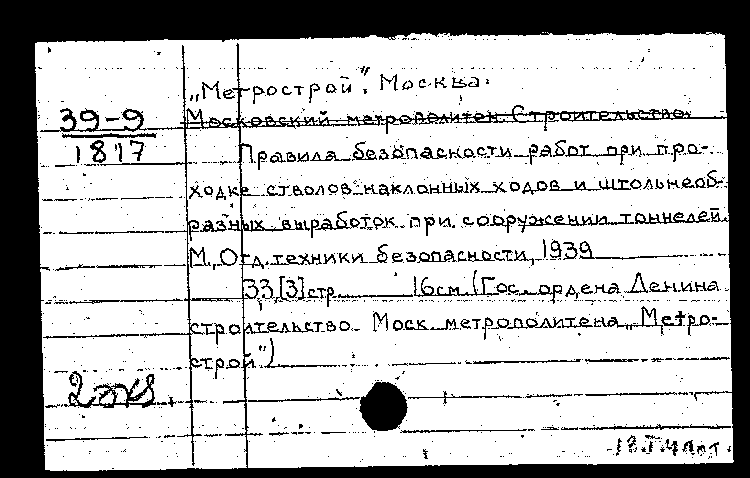 „Метрострой". Москва.
39-9
Московский метрополитен. Строительство.
1817
Правила безопасности работ при про-
ходке стволов наклонных ходов и штольнеоб-
разных выработок при сооружении тоннелей.
М., Отд. техники безопасности, 1939
33,[3] стр. 16 см. (Гос. ордена Ленина
строительство Моск. метрополитена „Метро-
строй")
2 экз.